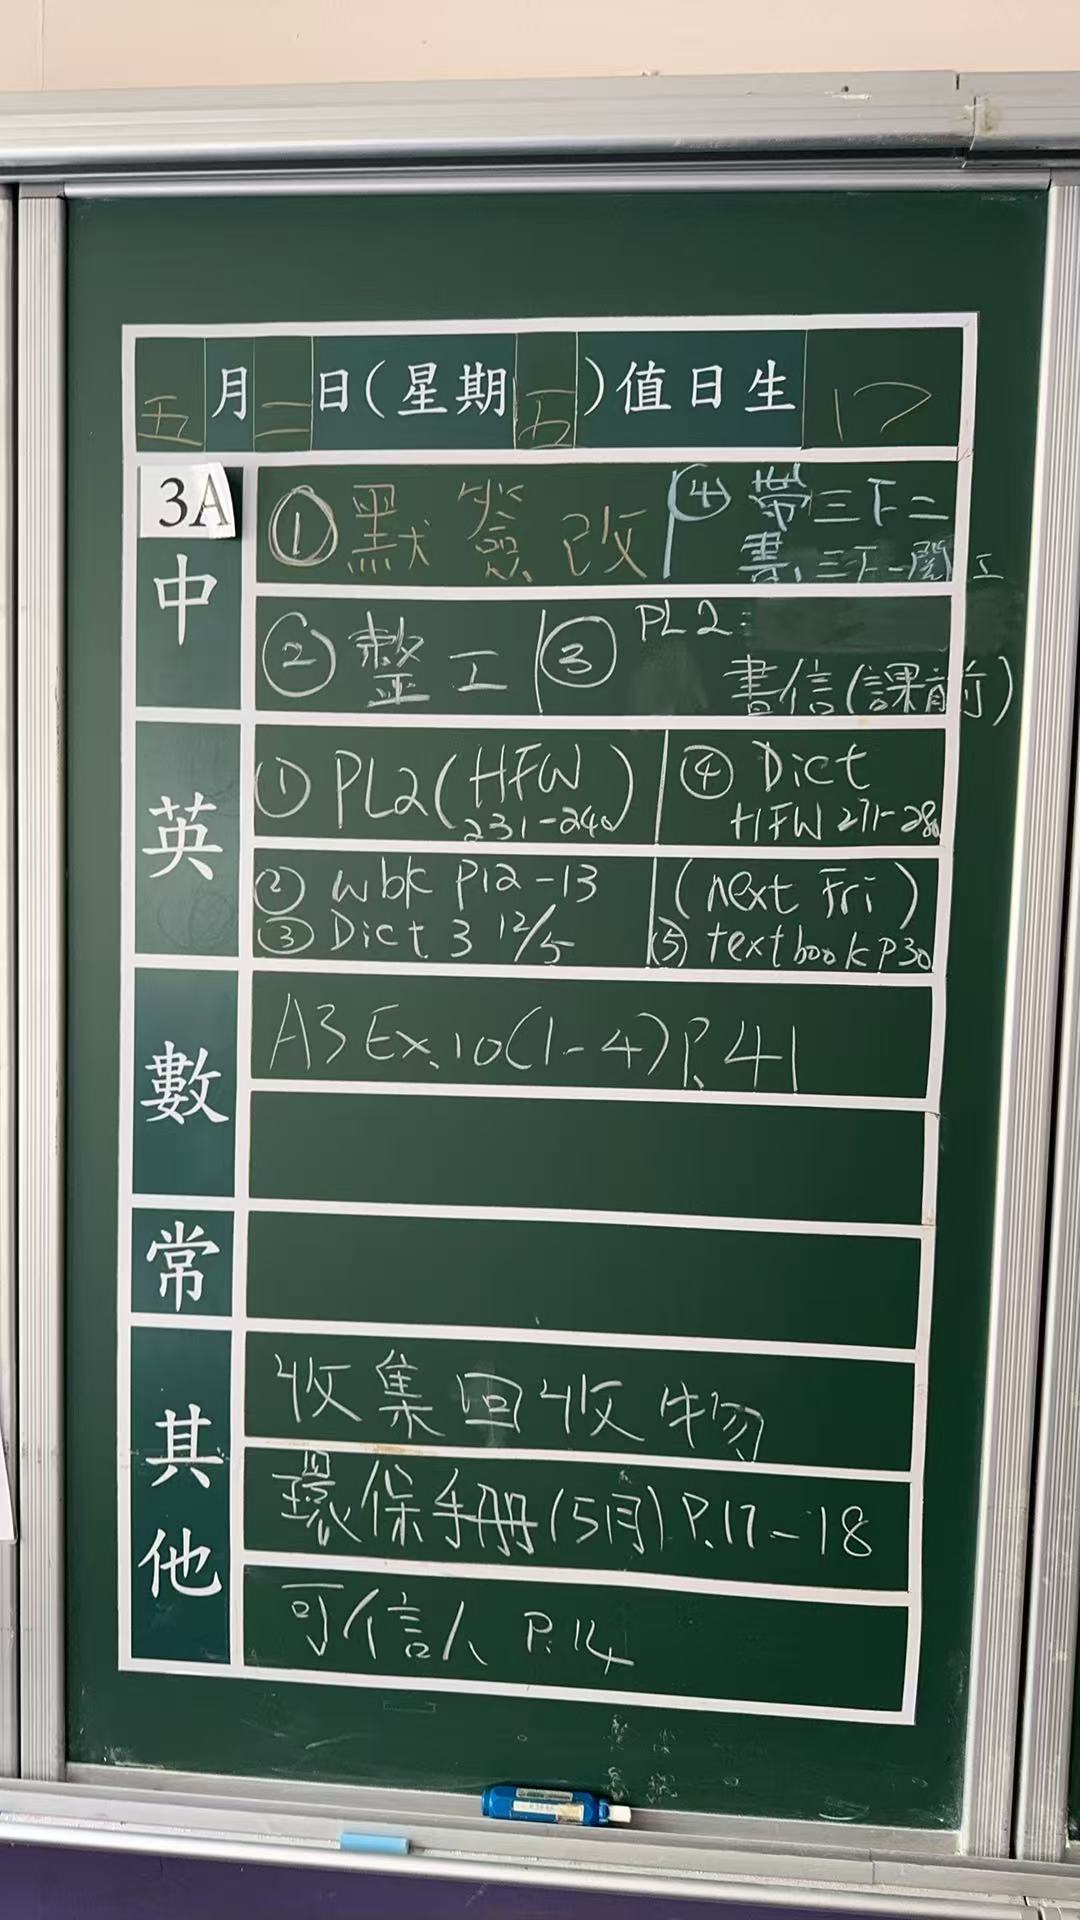 五月二日(星期五)值日生 17
3A
中
① 默簽改
④ 帶三下二
書,三下一閱工
② 整工
③ PL2:
書信(課前)
英
① PL2(HFW
231-240)
④ Dict
HFW 271-280
② wbk P12-13
(next Fri)
③ Dict 3 12/5
⑤ textbook P30
數
A3 Ex.10(1-4)P.41
常
其他
收集回收物
環保手册(5月)P.17-18
可信人 P.14